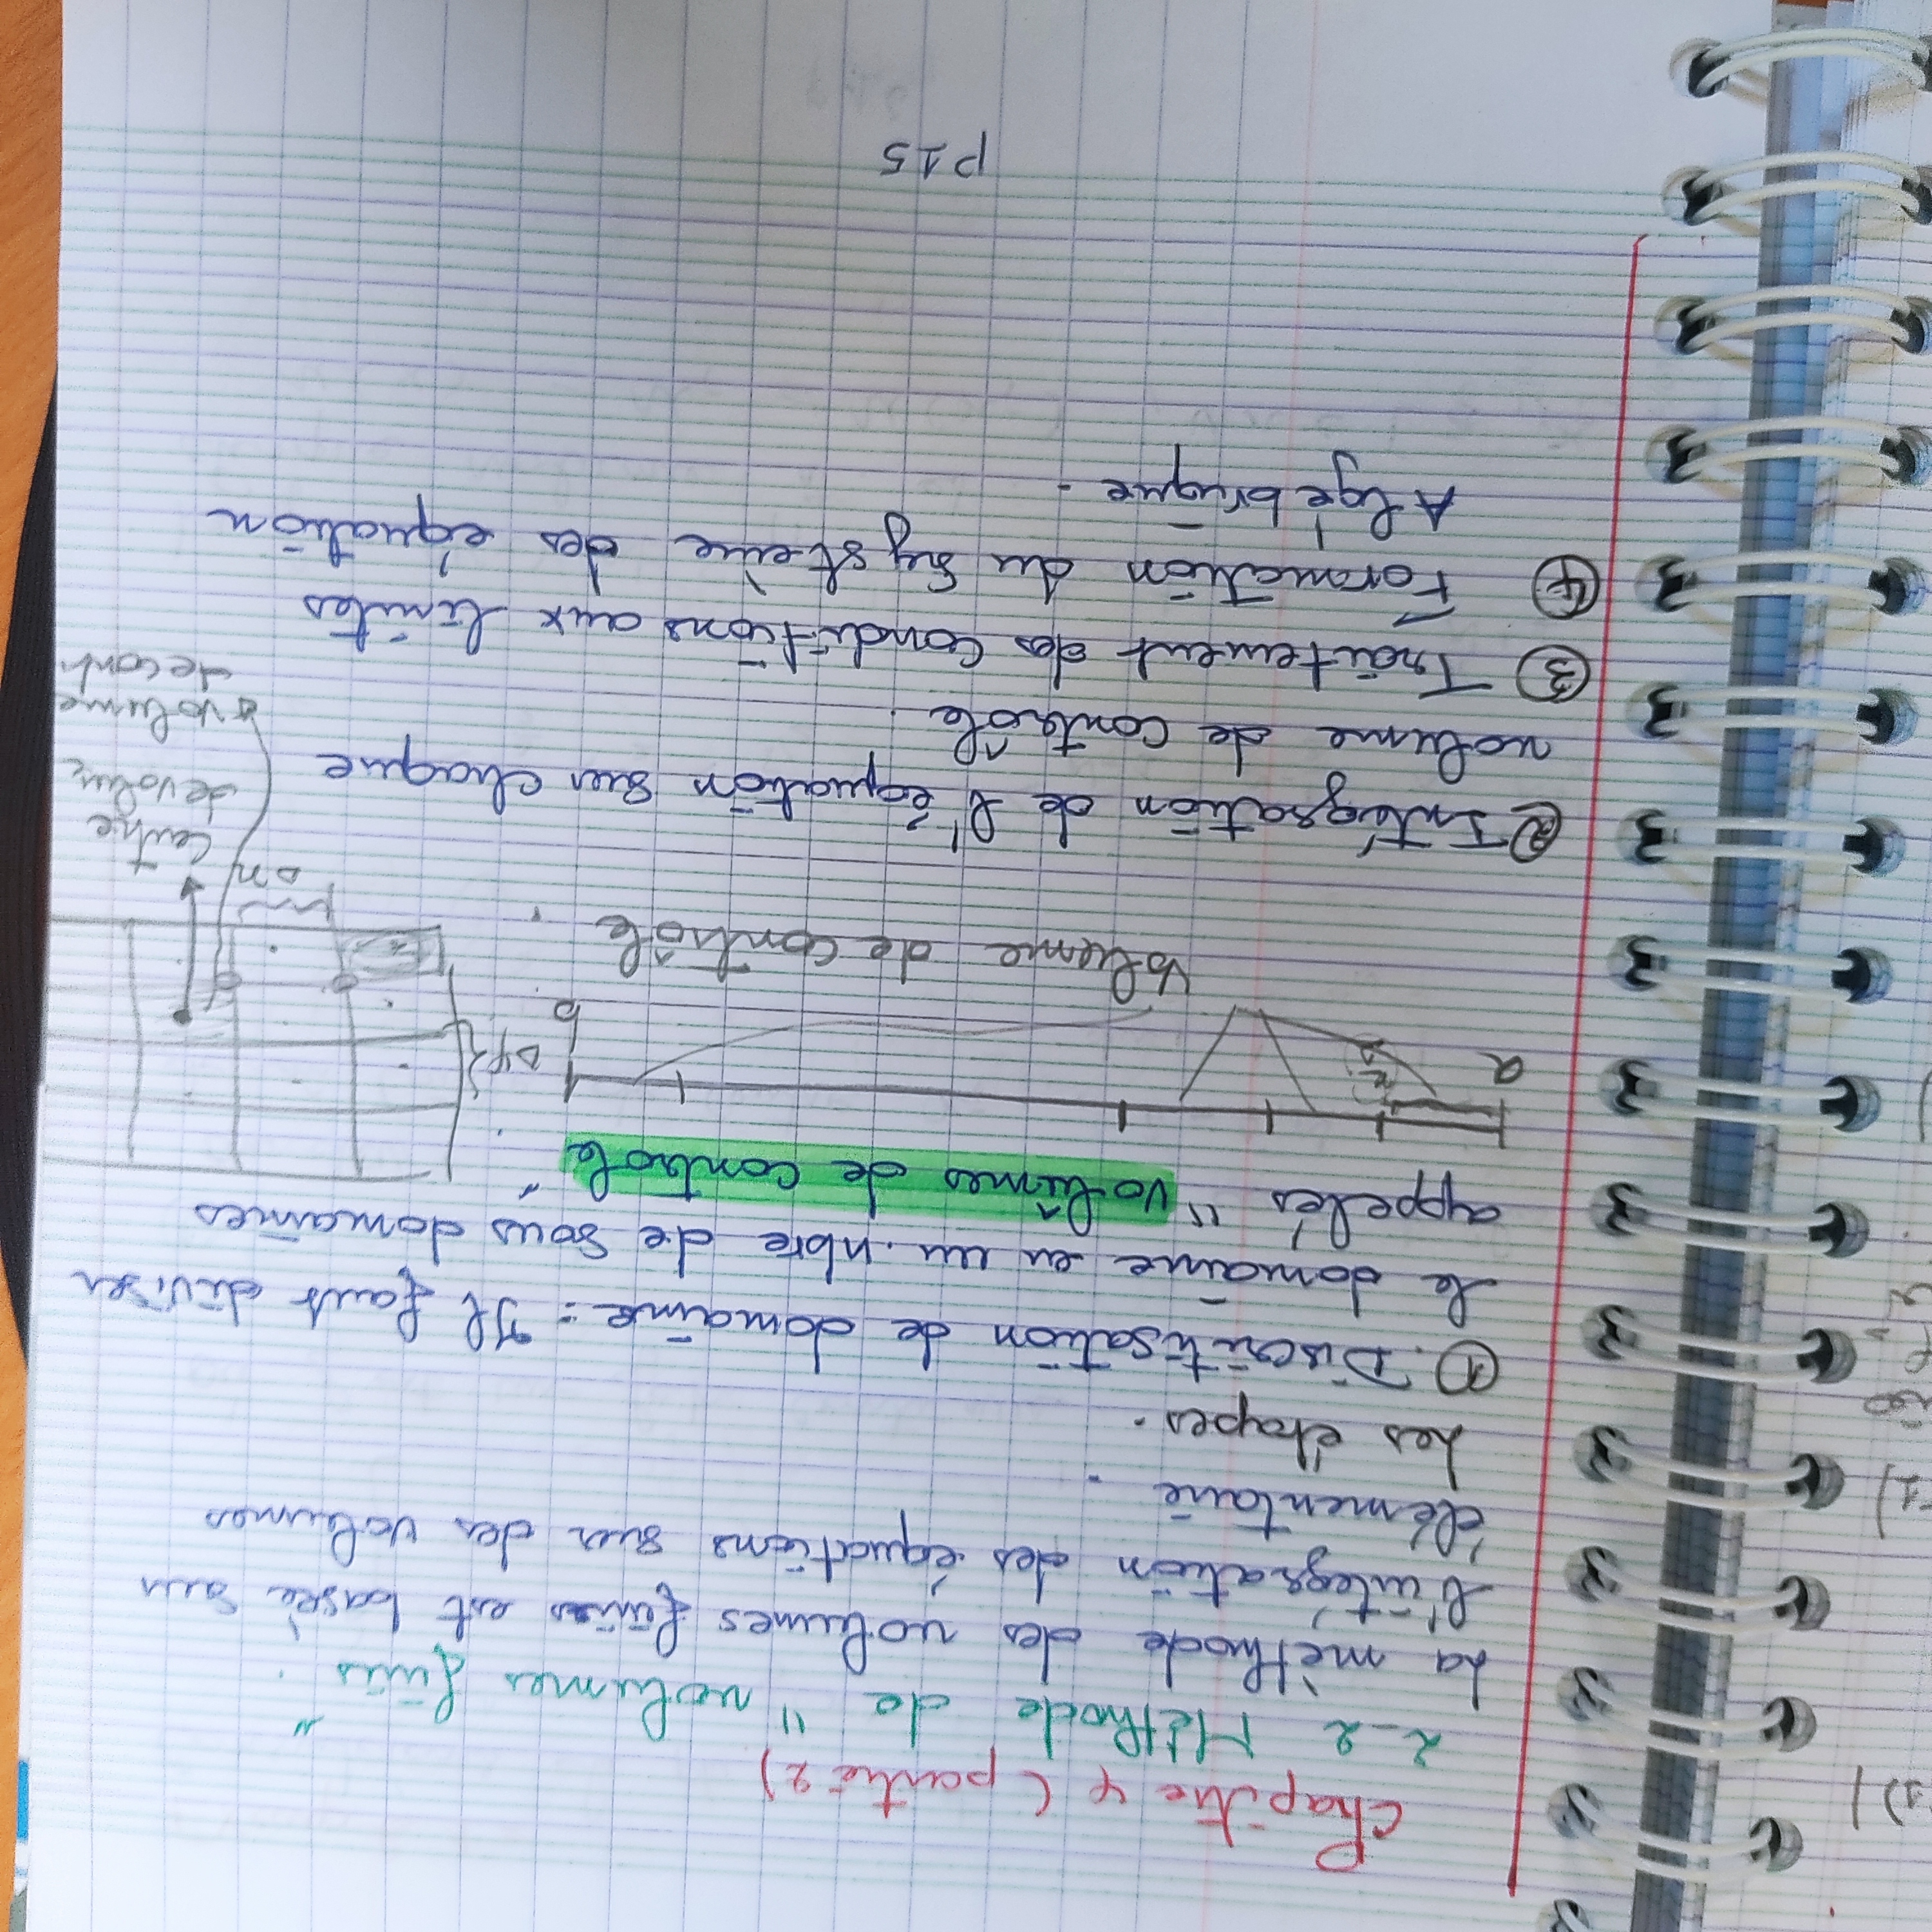 Chapitre 4 (partie 2)
2-2 Méthode de "volumes finis".
La mèthode des volumes finies est basèe sur
l'intégration des équations sur des volumes
élémentaire.
Les étapes.
①. Discritisation de domaine : Il faut diviser
le domaine en un nbre de sous domaines
appelés "volûmes de controle".
a
b
Δy
Volume de contrôle.
Δx
Centre
de volum
volume
de cont
② Intégration de l'équation sur chaque
volume de contrôle.
③ Traitement des conditions aux limites
④ Formation du système des équation
Algébrique.
P15